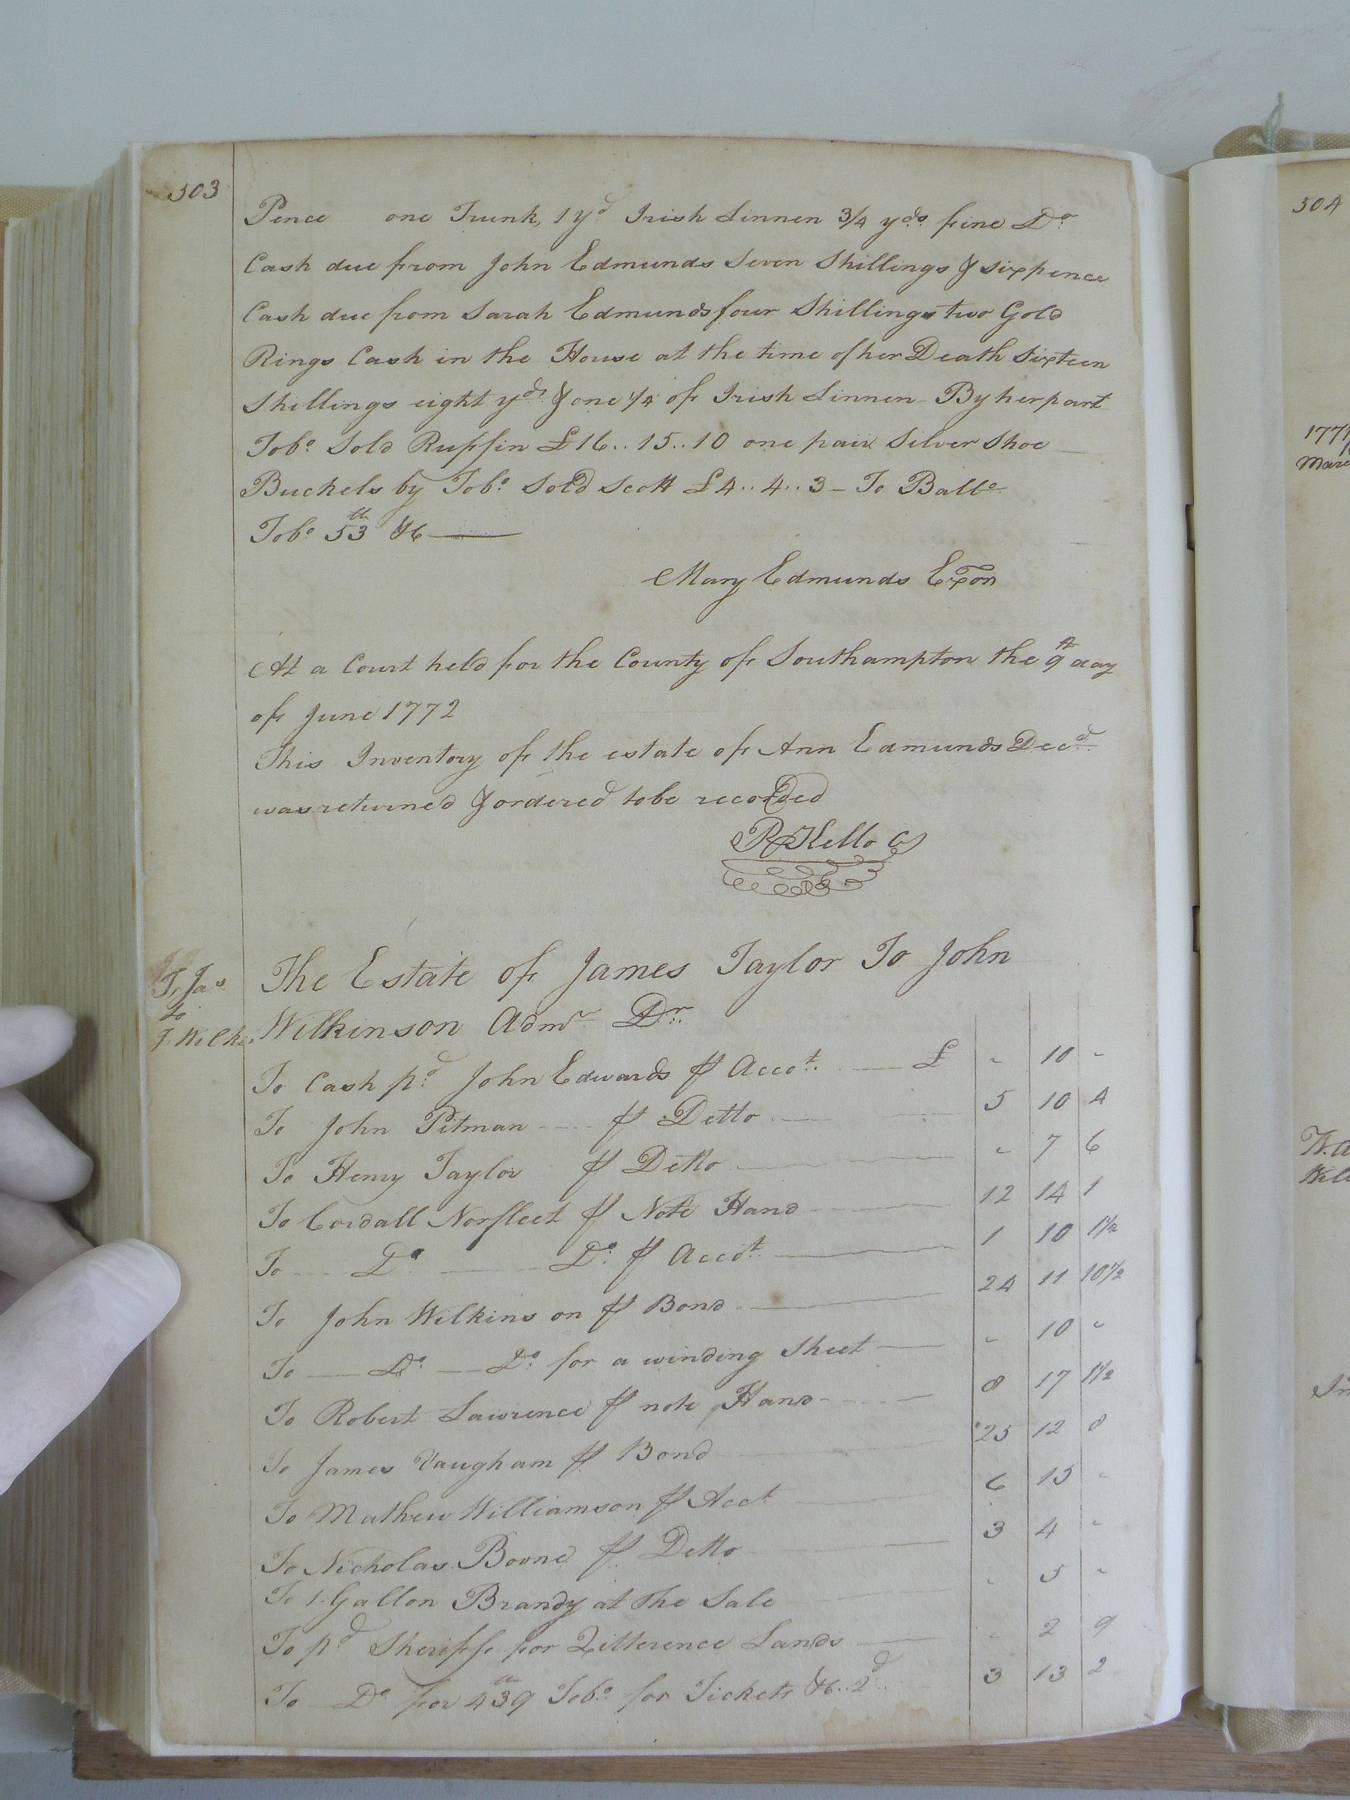 303
Pence one Trunk, 1 yd Irish Linnen 3/4 yds. fine Do
Cash due from John Edmunds Seven Shillings & sixpence
Cash due from Sarah Edmunds four Shillings two Gold
Rings Cash in the House at the time of her Death Sixteen
Shillings eight yds & one 1/4 of Irish Linnen - By her part
Tobo. Sold Ruffin £16..15..10 one pair Silver Shoe
Buckels by Tobo. Sold Scott £4..4..3 - To Balle
Tobo. 53th
Mary Edmunds Exon
At a Court held for the County of Southampton the 9th day
of June 1772
This Inventory of the estate of Ann Edmunds Decd
was returned & ordered to be recorded
R Kello C
T. Jas
to
J. Wilk
The Estate of James Taylor To John
Wilkinson Admr Dr.
To Cash pd John Edwards pr Accot. £ - 10 -
To John Pitman pr Ditto 5 10 4
To Henry Taylor pr Detto - 7 6
To Cordall Norfleet pr Note Hand 12 14 1
To Do Do. pr Accot 1 10 1 1/2
To John Wilkinson pr Bond 24 11 10 1/2
To Do. Do. for a winding Sheet - 10 -
To Robert Lawrence pr note Hand 8 17 1 1/2
To James Vaugham pr Bond 25 12 8
To Mathew Williamson pr Acct 6 15 -
To Nicholas Boone pr Detto 3 4 -
To 1 Gallon Brandy at the Sale - 5 -
To pd Sheriff for Lands - 2 9
To Do for 439th Tobo. for Tickets 3 13 2
304
1771